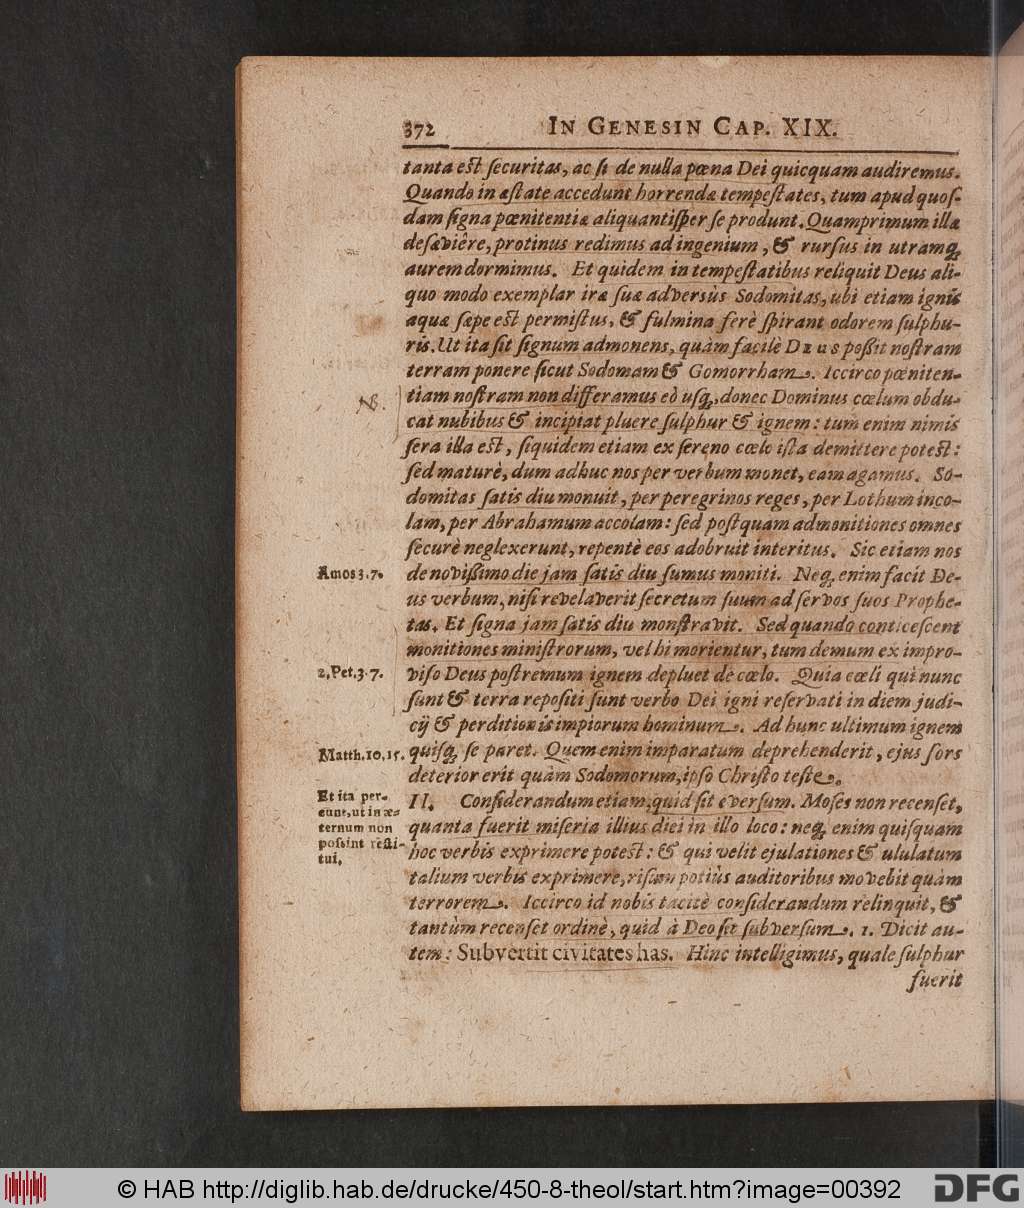 372 IN GENESIN CAP. XIX.
tanta eſt ſecuritas, ac ſi de nulla pœna Dei quicquam audiremus.
Quando in æſtate accedunt horrendæ tempeſtates, tum apud quoſ-
dam ſigna pœnitentiæ aliquantiſper ſe produnt. Quamprimum illæ
deſæviêre, protinus redimus ad ingenium, & rurſus in utramq́;
aurem dormimus. Et quidem in tempeſtatibus reliquit Deus ali-
quo modo exemplar iræ ſuæ adverſùs Sodomitas, ubi etiam ignis
aquæ ſæpe eſt permiſtus, & fulmina ferè ſpirant odorem ſulphu-
ris. Ut ita ſit ſignum admonens, quàm facilè DEUS poßit noſtram
terram ponere ſicut Sodomam & Gomorrham. Iccirco pœniten-
NB.
tiam noſtram non differamus eò uſq́;, donec Dominus cœlum obdu-
cat nubibus & incipiat pluere ſulphur & ignem: tum enim nimis
ſera illa eſt, ſiquidem etiam ex ſereno cœlo iſta demittere poteſt:
ſed maturè, dum adhuc nos per verbum monet, eam agamus. So-
domitas ſatis diu monuit, per peregrinos reges, per Lothum inco-
lam, per Abrahamum accolam: ſed poſtquam admonitiones omnes
ſecurè neglexerunt, repentè eos adobruit interitus. Sic etiam nos
Amos 3. 7.
de novißimo die jam ſatis diu ſumus moniti. Neq́; enim facit De-
us verbum, niſi revelaverit ſecretum ſuum ad ſervos ſuos Prophe-
tas. Et ſigna jam ſatis diu monſtravit. Sed quando conticeſcent
monitiones miniſtrorum, vel hi morientur, tum demum ex impro-
2. Pet. 3. 7.
viſo Deus poſtremum ignem depluet de cœlo. Quia cœli qui nunc
ſunt & terra repoſiti ſunt verbo Dei igni reſervati in diem judi-
cij & perditionis impiorum hominum. Ad hunc ultimum ignem
Matth. 10. 15.
quiſq́; ſe paret. Quem enim imparatum deprehenderit, ejus ſors
deterior erit quàm Sodomorum, ipſo Chriſto teſte.
Et ita per-
eunt, ut in æ-
ternum non
poſsint reſti-
tui.
II. Conſiderandum etiam, quid ſit everſum. Moſes non recenſet,
quanta fuerit miſeria illius diei in illo loco: neq́; enim quiſquam
hoc verbis exprimere poteſt: & qui velit ejulationes & ululatum
talium verbis exprimere, riſum potiùs auditoribus movebit quàm
terrorem. Iccirco id nobis tacitè conſiderandum relinquit, &
tantùm recenſet ordinè, quid à Deo ſit ſubverſum. 1. Dicit au-
tem: Subvertit civitates has. Hinc intelligimus, quale ſulphur
fuerit
© HAB http://diglib.hab.de/drucke/450-8-theol/start.htm?image=00392
diglib
DFG